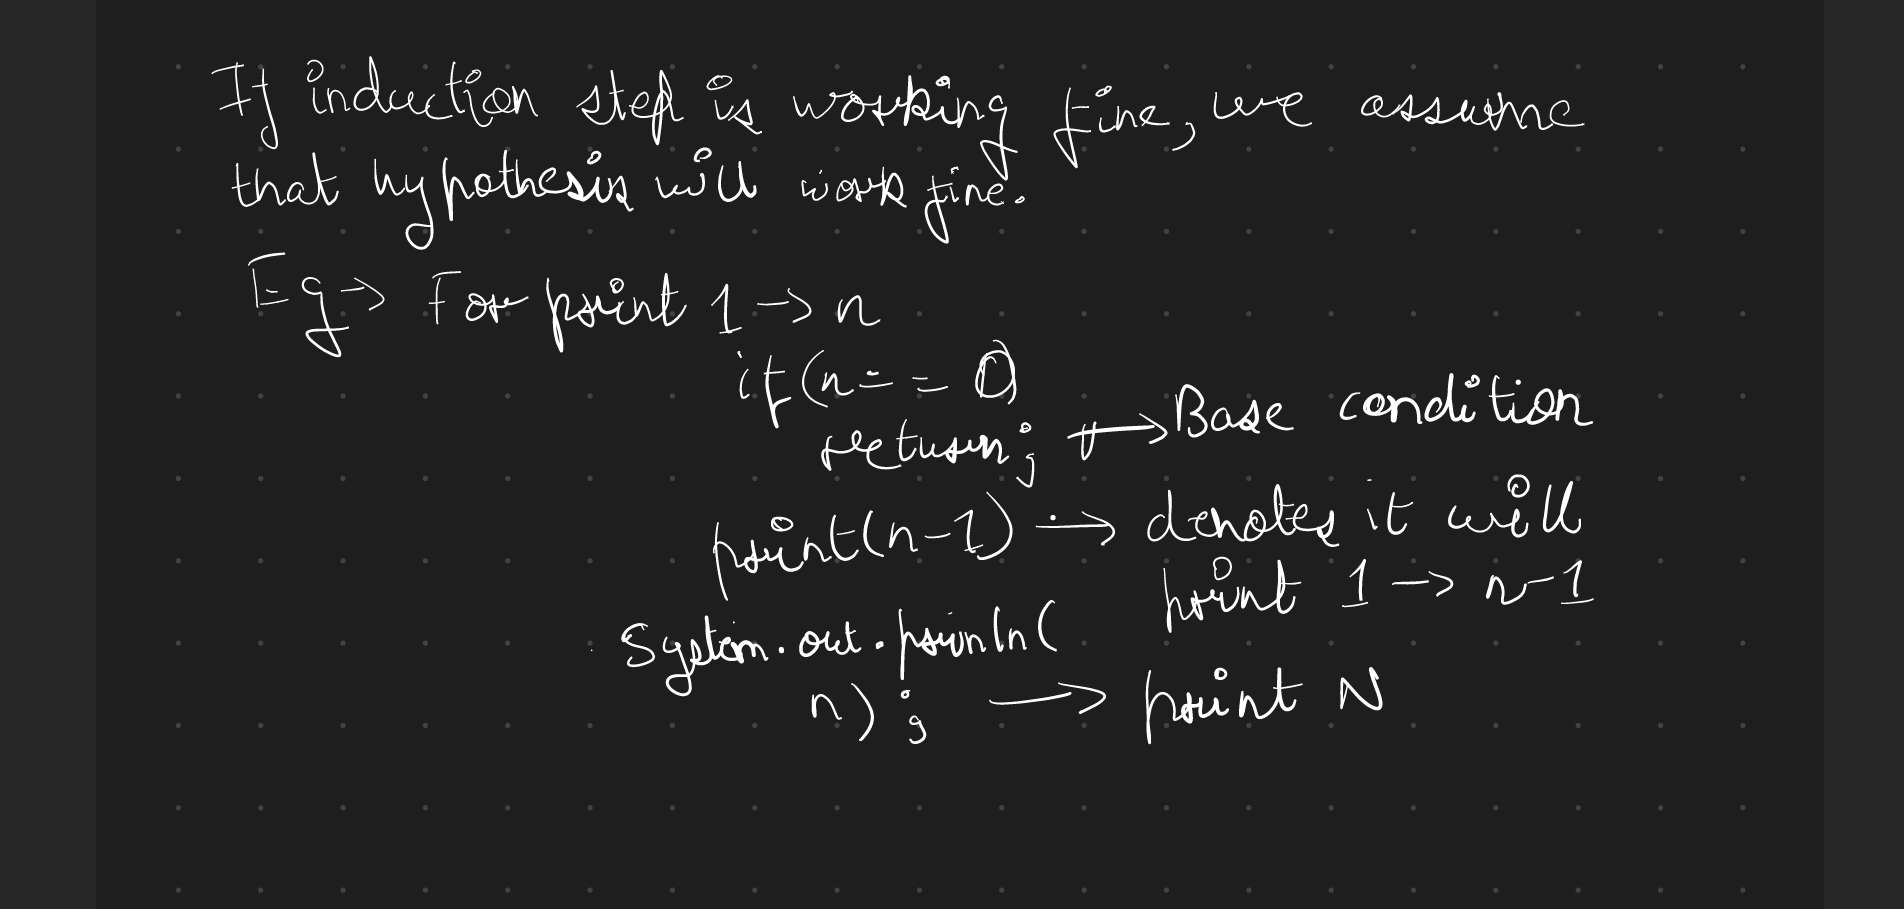 If induction step is working fine, we assume
that hypothesis will work fine.
Eg → For print 1 → n
if (n == 0)
return; → Base condition
print(n-1) → denotes it will
print 1 → n-1
System.out.prinln(
n); → print N